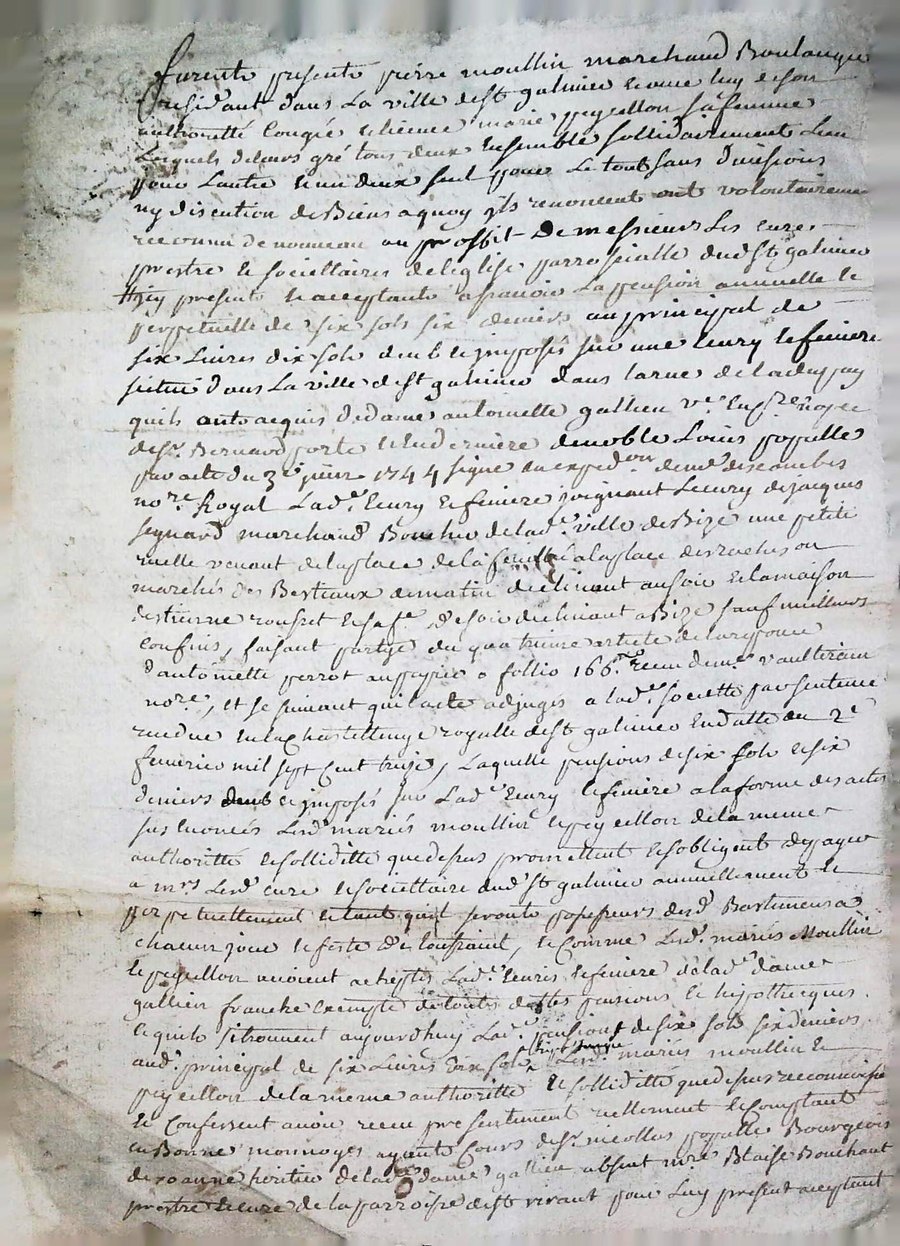 furent présents pierre moullin marchand Boulanger
residant dans La ville de st galmier et avec luy de son
authoritté Congée et licence marie peyellon sa femme
Lesquels de leurs gré tous deux Ensemble sollidairement Lun
pour Lautre et un deux seul pour Le tout sans divisions
ny discution de Biens a quoy ils renoncent ont volontaireme
reconnu de nouveau au proffit De messieurs Les cure
prestre et societtaires de leglise parroissialle dud st galmier
icy presents et acceptants a sçavoir La pension annuelle et
perpetuelle de six sols six deniers au principal de
six Livres dix sols deub et imposés sur une Ecury et feniere
scitué dans La ville de st galmier dans la rue de
quils ont acquis de dame antoinette gallien ve En
de sr Bernard porte et En derniere de noble Louis populle
par acte du 3e 1744 signé En exped on de me
no.re Royal Lad.e Ecury et feniere joignant Lecury de jacques
marchand Boucher de lad.e ville de Bize une petite
ruelle venant de la place de la a la place des roches ou
marchés des Bestiaux de matin declinant au soir et la maison
destienne rousset et sa fe de soir declinant a Bize sauf meilleurs
confins, faisant partye du quatrieme article de la reponce
dantoinette perrot au papier o follio 166 recu de me vaulterain
no.re, et se suivant qui lacte adjugés a lad.e societte par sentence
rendue En la Chastellenye royalle de st galmier En datte du 2e
fevrier mil sept Cent treize, Laquelle pensions de six sols et six
deniers deub et imposés sur Lad.e Ecury et feniere a la forme des actes
sus Enoncés Lesd. mariés moullin et peyellon de la meme
authoritté et solliditté que dessus promettent et sobligent de payer
a mrs Lesd. cure et societtaire dud st galmier annuellement et
perpetuellement et tant quil seront possesseurs desd. Bastiments a
chacun jour et feste de toussaint, et Comme Lesd. mariés Moullin
et peyellon avoient acheptés Lad.e Ecurie et feniere de lad.e dame
gallien franche Exempte de toute dettes pensions et hipothecques
et quil se trouvent aujourdhuy Lad.e pensions de six sols six deniers
aud. principal de six Livres dix sols Lesd. mariés moullin et
peyellon de la meme authoritté et solliditté que dessus reconnoisse
et Confessent avoir receu presentement reellement et Comptant
En Bonne monnoyes ayant Cours de sr nicollas populle Bourgeois
de roanne heritier de lad.e dame gallien absent mre Blaise Bouchant
prestre et cure de la parroisse de st vivant pour Luy present acceptant